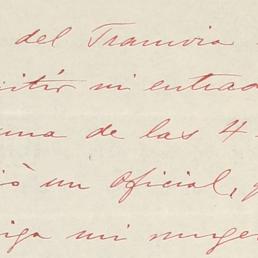 del Tranvia
mitir mi entrad
una de las 4
ió un Oficial,
iga mi muger